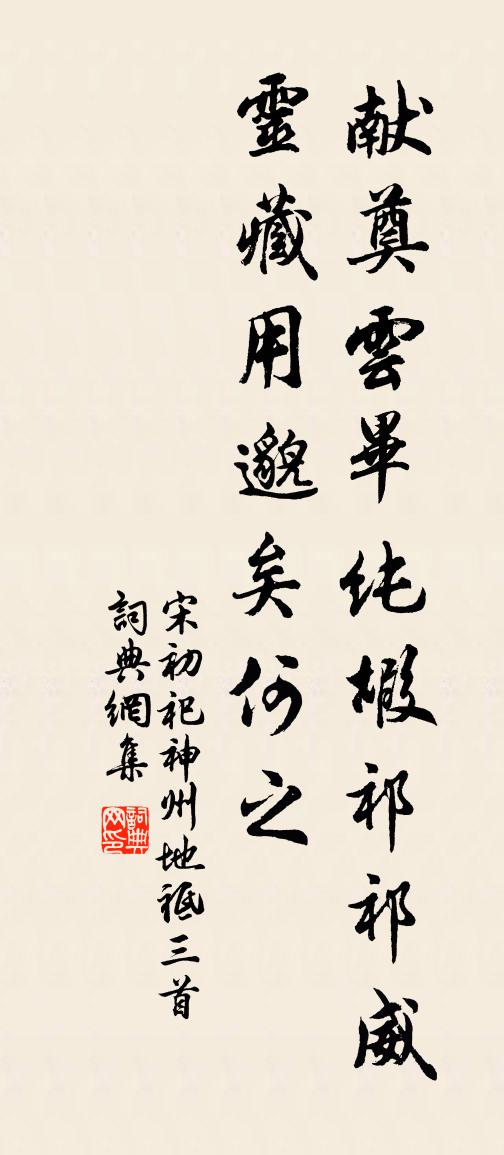 献奠雲畢纯嘏祁祁威
靈藏用邈矣何之
宋初祀神州地祗三首
詞典網集
詞典
网印